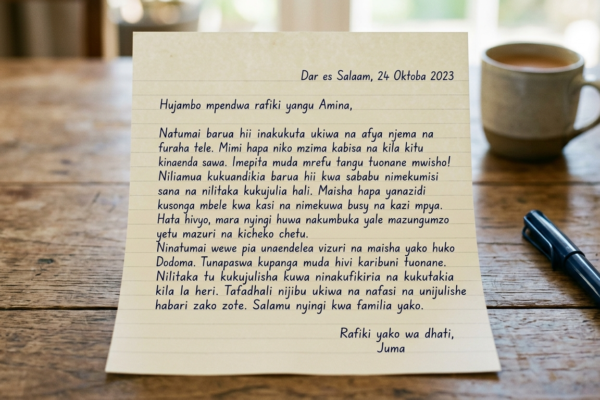 Dar es Salaam, 24 Oktoba 2023
Hujambo mpendwa rafiki yangu Amina,
Natumai barua hii inakukuta ukiwa na afya njema na
furaha tele. Mimi hapa niko mzima kabisa na kila kitu
kinaenda sawa. Imepita muda mrefu tangu tuonane mwisho!
Niliamua kukuandikia barua hii kwa sababu nimekumisi
sana na nilitaka kukujulia hali. Maisha hapa yanazidi
kusonga mbele kwa kasi na nimekuwa busy na kazi mpya.
Hata hivyo, mara nyingi huwa nakumbuka yale mazungumzo
yetu mazuri na kicheko chetu.
Ninatumai wewe pia unaendelea vizuri na maisha yako huko
Dodoma. Tunapaswa kupanga muda hivi karibuni tuonane.
Nilitaka tu kukujulisha kuwa ninakufikiria na kukutakia
kila la heri. Tafadhali nijibu ukiwa na nafasi na unijulishe
habari zako zote. Salamu nyingi kwa familia yako.
Rafiki yako wa dhati,
Juma